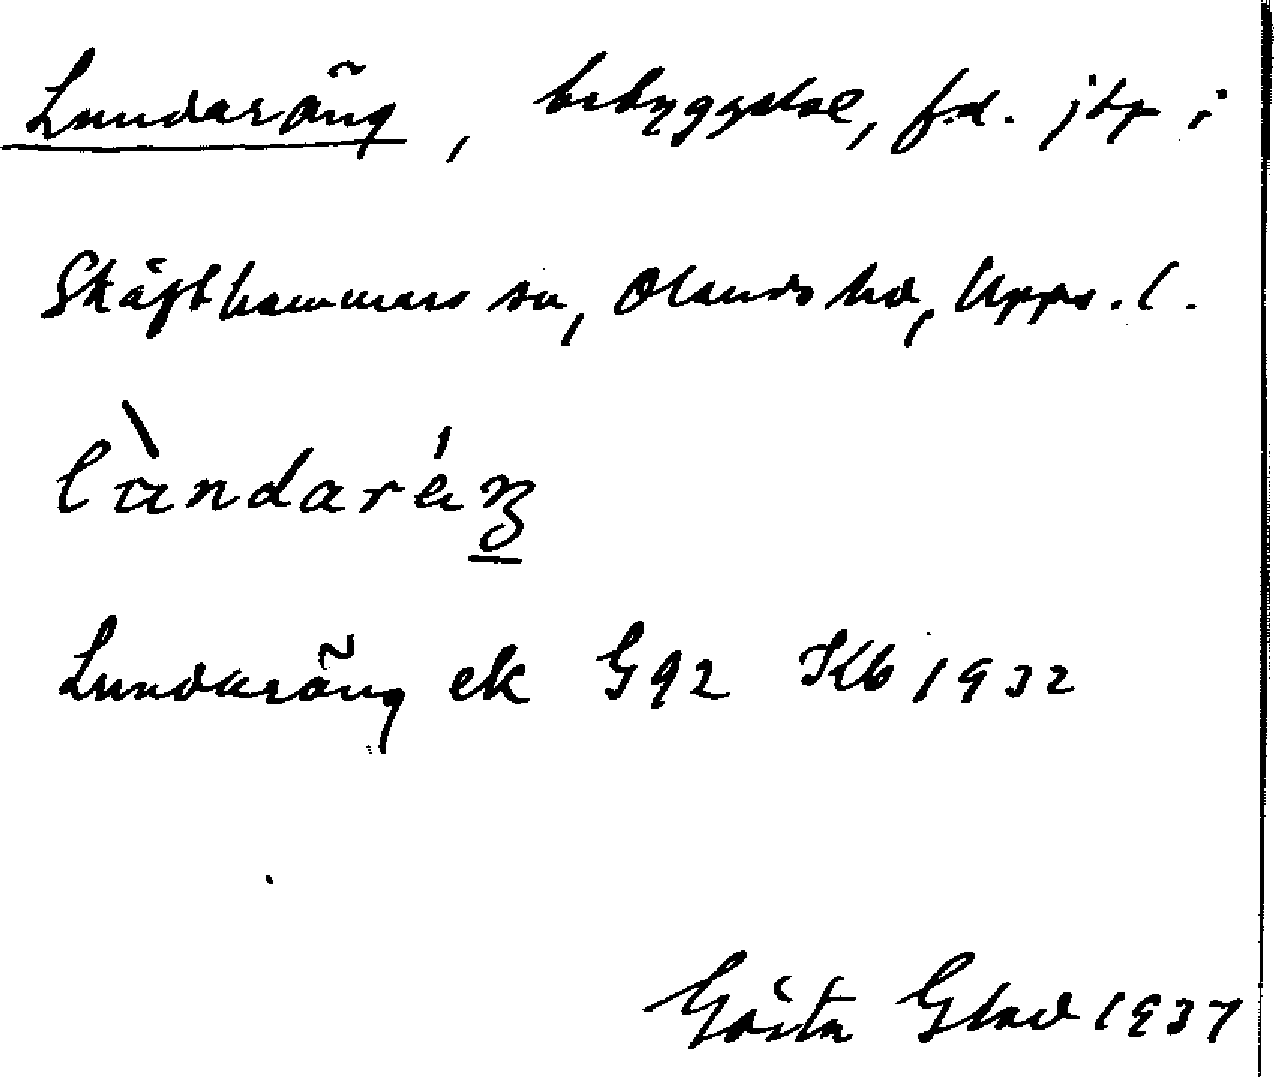 Lundaräng, bebyggelse, fd. jtp i
Skäfthammars sn, Olands hd, Upps. l.
Lundaräng ek G92 Kb 1932
Gösta Glad 1937